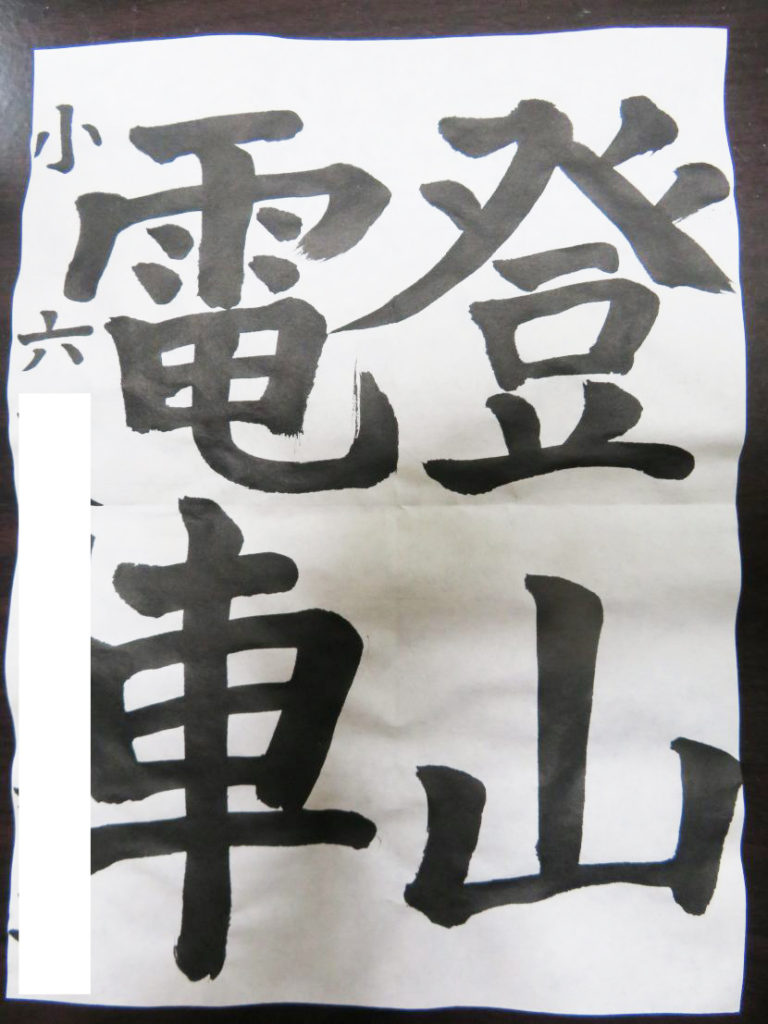 登山
電車
小六